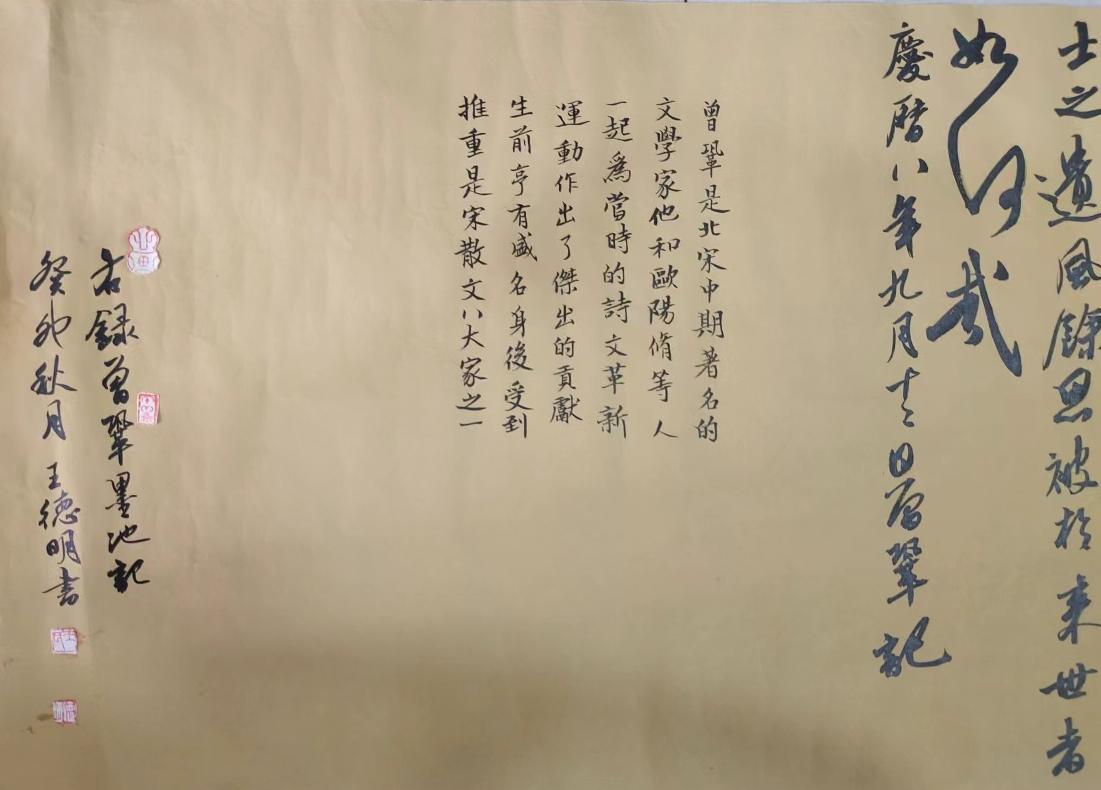 士之遺風餘思被於来世者
如何哉
慶曆八年九月十二日曾鞏記
曾鞏是北宋中期著名的
文學家他和歐陽脩等人
一起爲當時的詩文革新
運動作出了傑出的貢獻
生前亨有盛名身後受到
推重是宋散文八大家之一
右録曾鞏墨池記
癸卯秋月王德明書